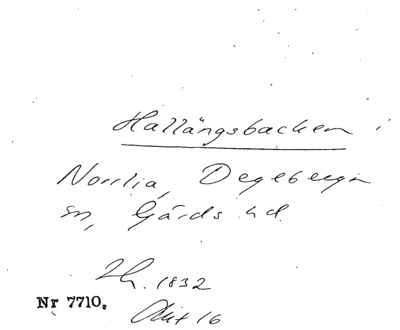 Hallängsbacken i
Norrlia, Degeberga
sn, Gärds hd
Lh. 1832
Nr 7710.
Akt 16